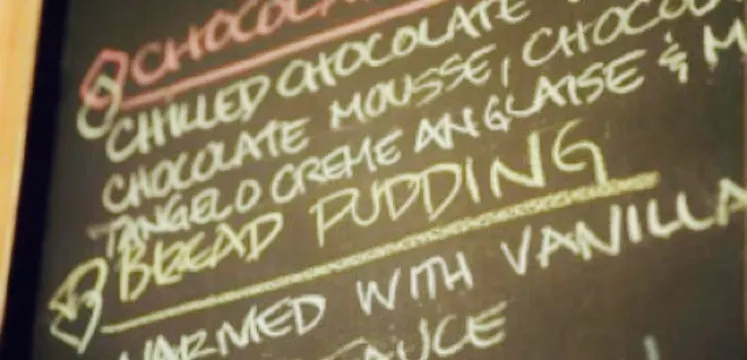 CHOCOLA
CHILLED CHOCOLATE
CHOCOLATE MOUSSE, CHOCOL
TANGELO CREME ANGLAISE & M
BREAD PUDDING
WARMED WITH VANILLA
SAUCE